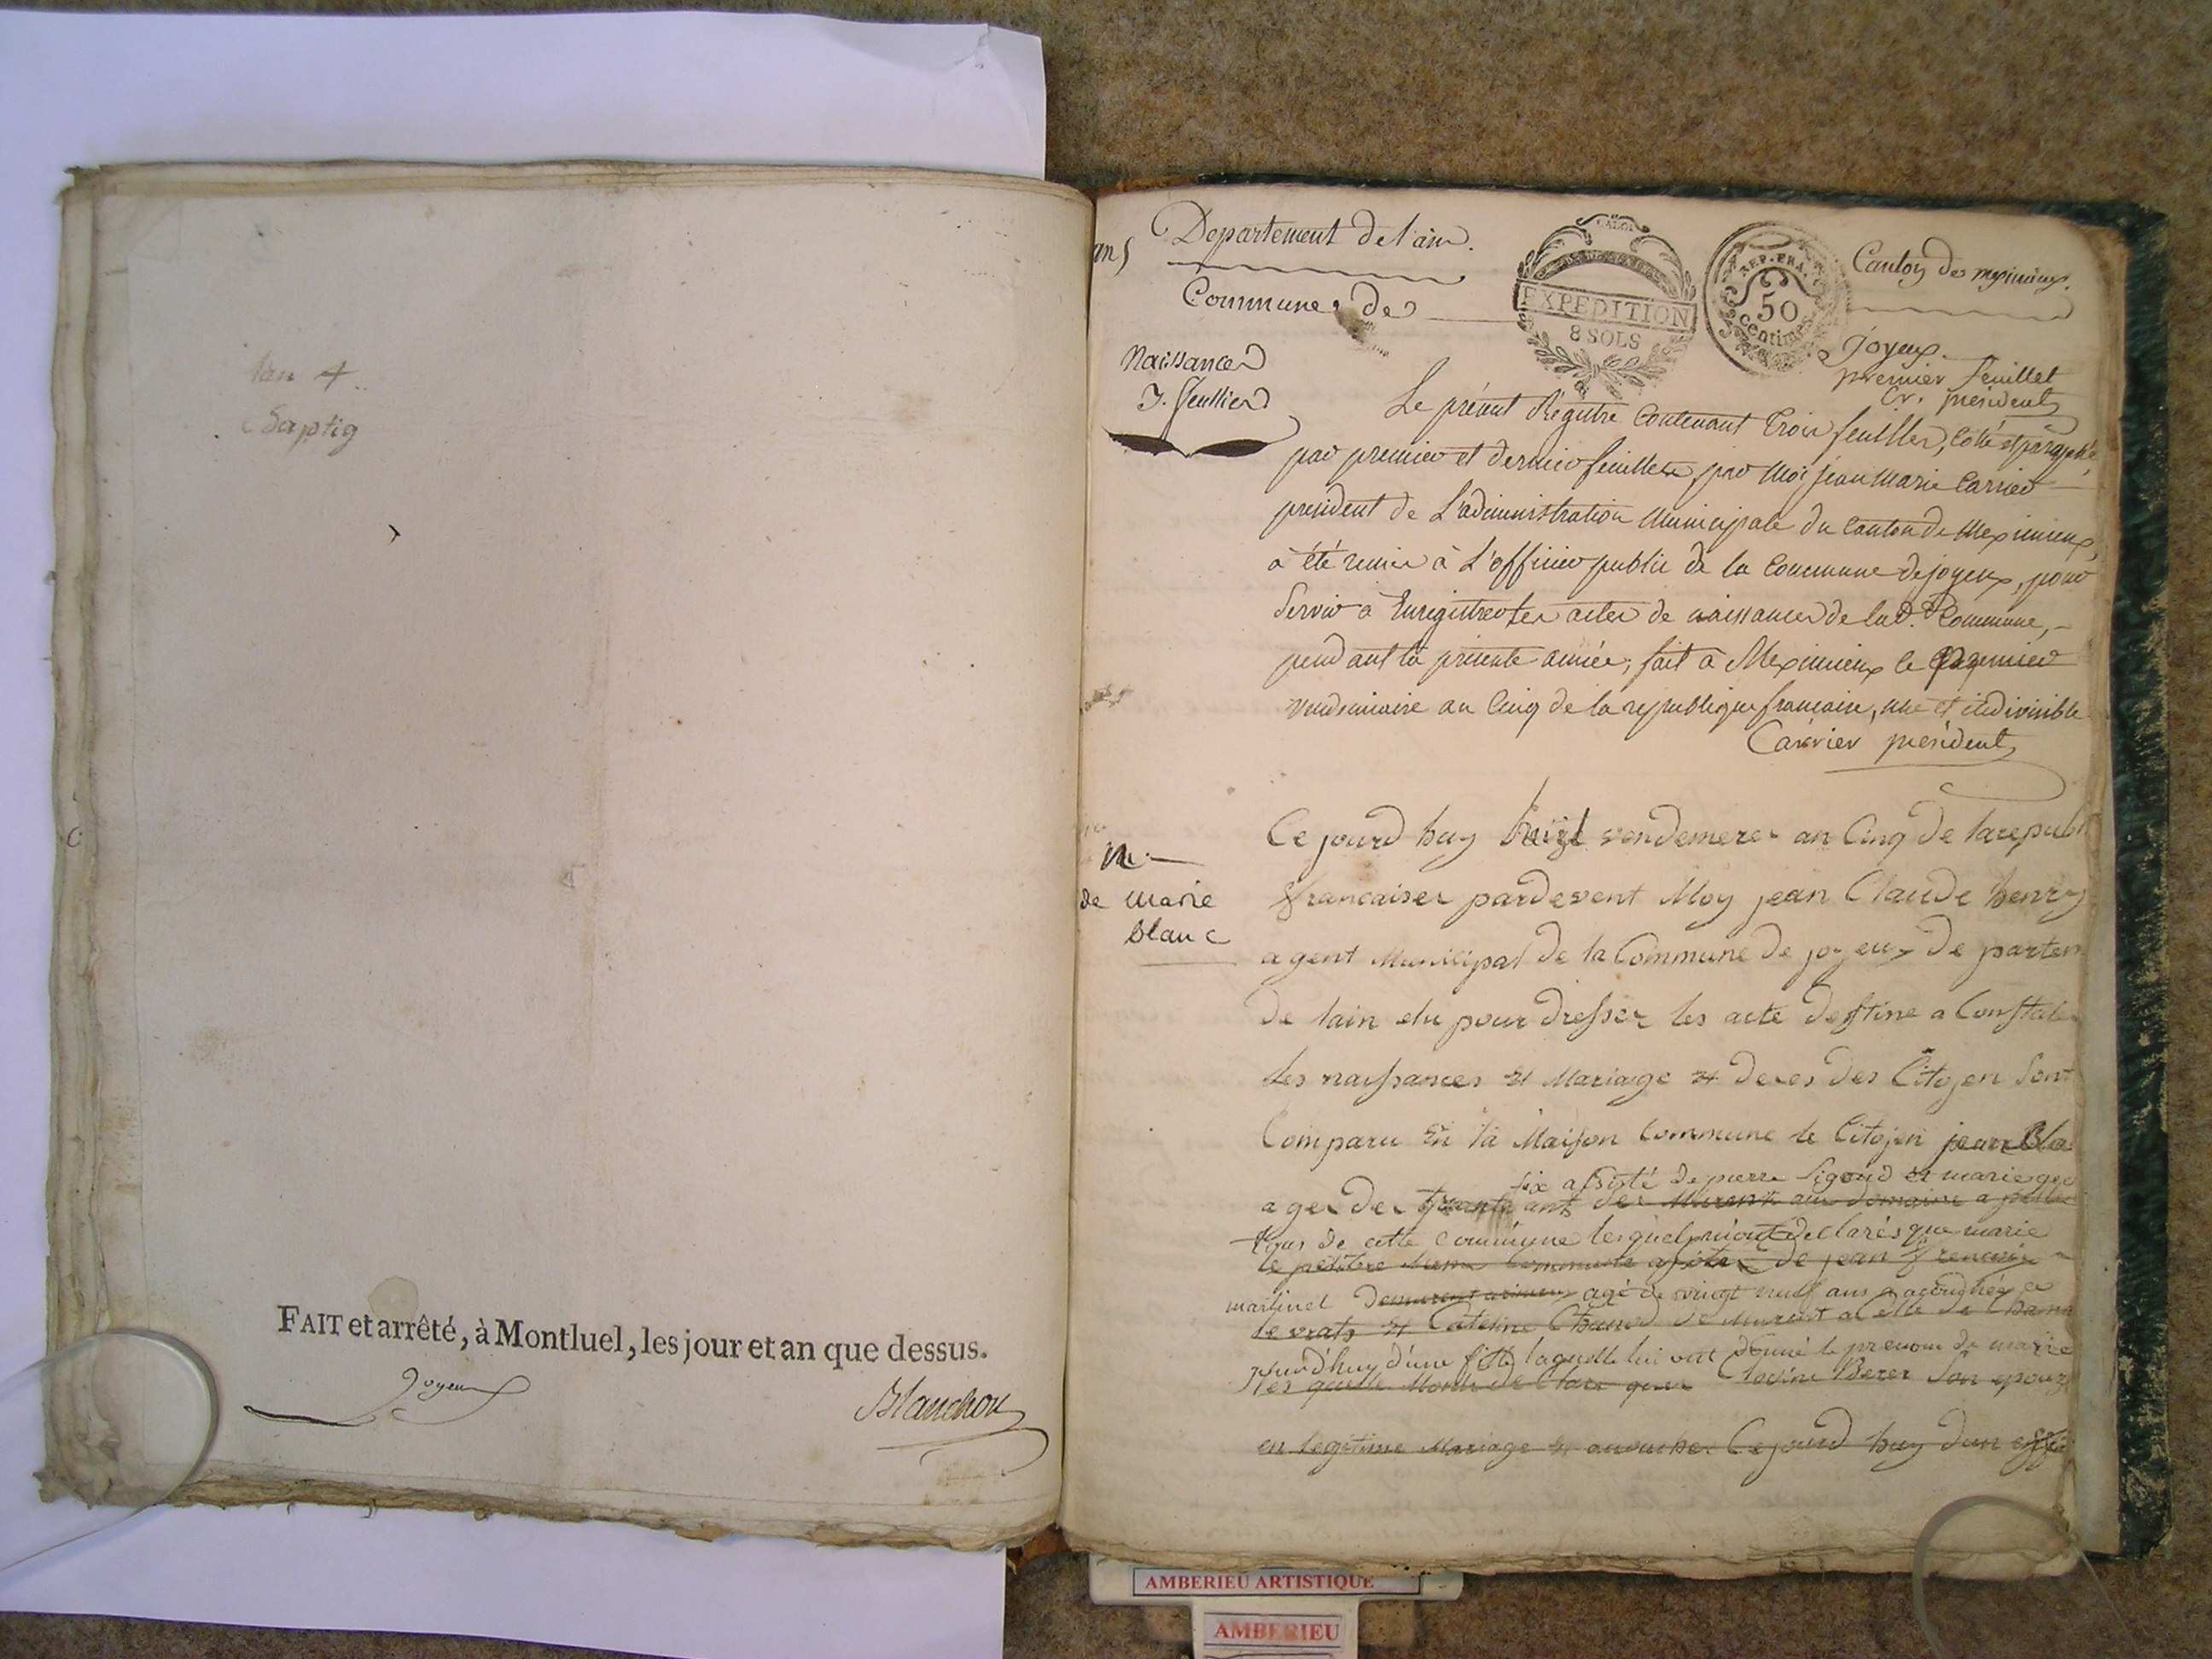 lan 4
Baptig
FAIT et arrêté, à Montluel, les jour et an que dessus.
Joyeux
Blanchon
an 5
Departement de l'ain.
Commune de
LA LOI
EXPEDITION
8 SOLS
REP. FRA.
50
centimes
Canton de meximieux.
Joyeux.
premier feuillet
Cr. president
Naissances
3. feuilles
Le présent Régistre Contenant Trois feuilles, côté et paraphé,
par premier et dernier feuillets, par Moi jean Marie Carrier
president de L'administration Municipale du Canton de Meximieux,
à été remis à L'officier public de la Commune de joyeux, pour
Servir à Enregistrer les actes de naissances de lad. Commune,
pendant la présente année; fait à Meximieux le Premier
vendemiaire an Cinq de la republique francaise, une et indivisible
Carrier president
N.
de marie
blanc
Ce jourd huy huigt vendemere an Cinq de la republ
francaiser pardevent Moy jean Claude henry
agent Municipal de la Commune de joyeux De partem
De lain elu pour dresser les acte destine a Constater
les naissances et Mariage et deces des Citoyen Sont
Comparu En la Maison Commune le Citojen jean Bla
six assisté de pierre Sigoud et marie
ager de trante ans
tous de cette commune lesquel m'ont déclarés que marie
le jean francoi
martinet agé de vingt neuf ans a accouchée ce
et Cateline
jourd'huy d'une fille laquelle lui ont donné le prenom de marie
Son epouz
en legitime Mariage et acoucher Cejourd huy dun
AMBERIEU ARTISTIQUE
AMBERIEU